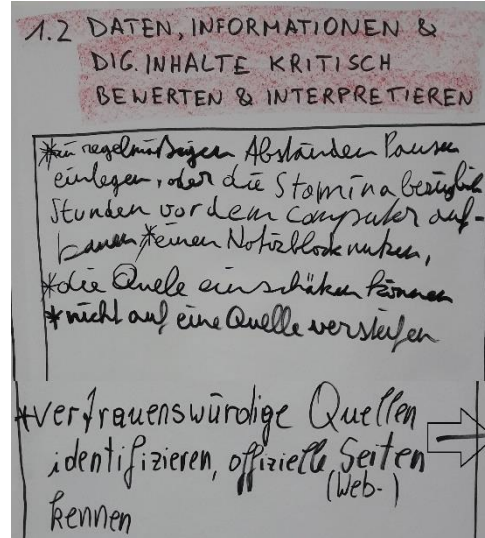 1.2 DATEN, INFORMATIONEN &
DIG. INHALTE KRITISCH
BEWERTEN & INTERPRETIEREN
*in regelmäßigen Abständen Pausen
einlegen, oder die Stamina bezüglich
Stunden vor dem Computer auf-
bauen *einen Notizblock nutzen,
*die Quelle einschätzen können
*nicht auf eine Quelle versteifen
*vertrauenswürdige Quellen
identifizieren, offizielle Seiten
(Web-)
kennen